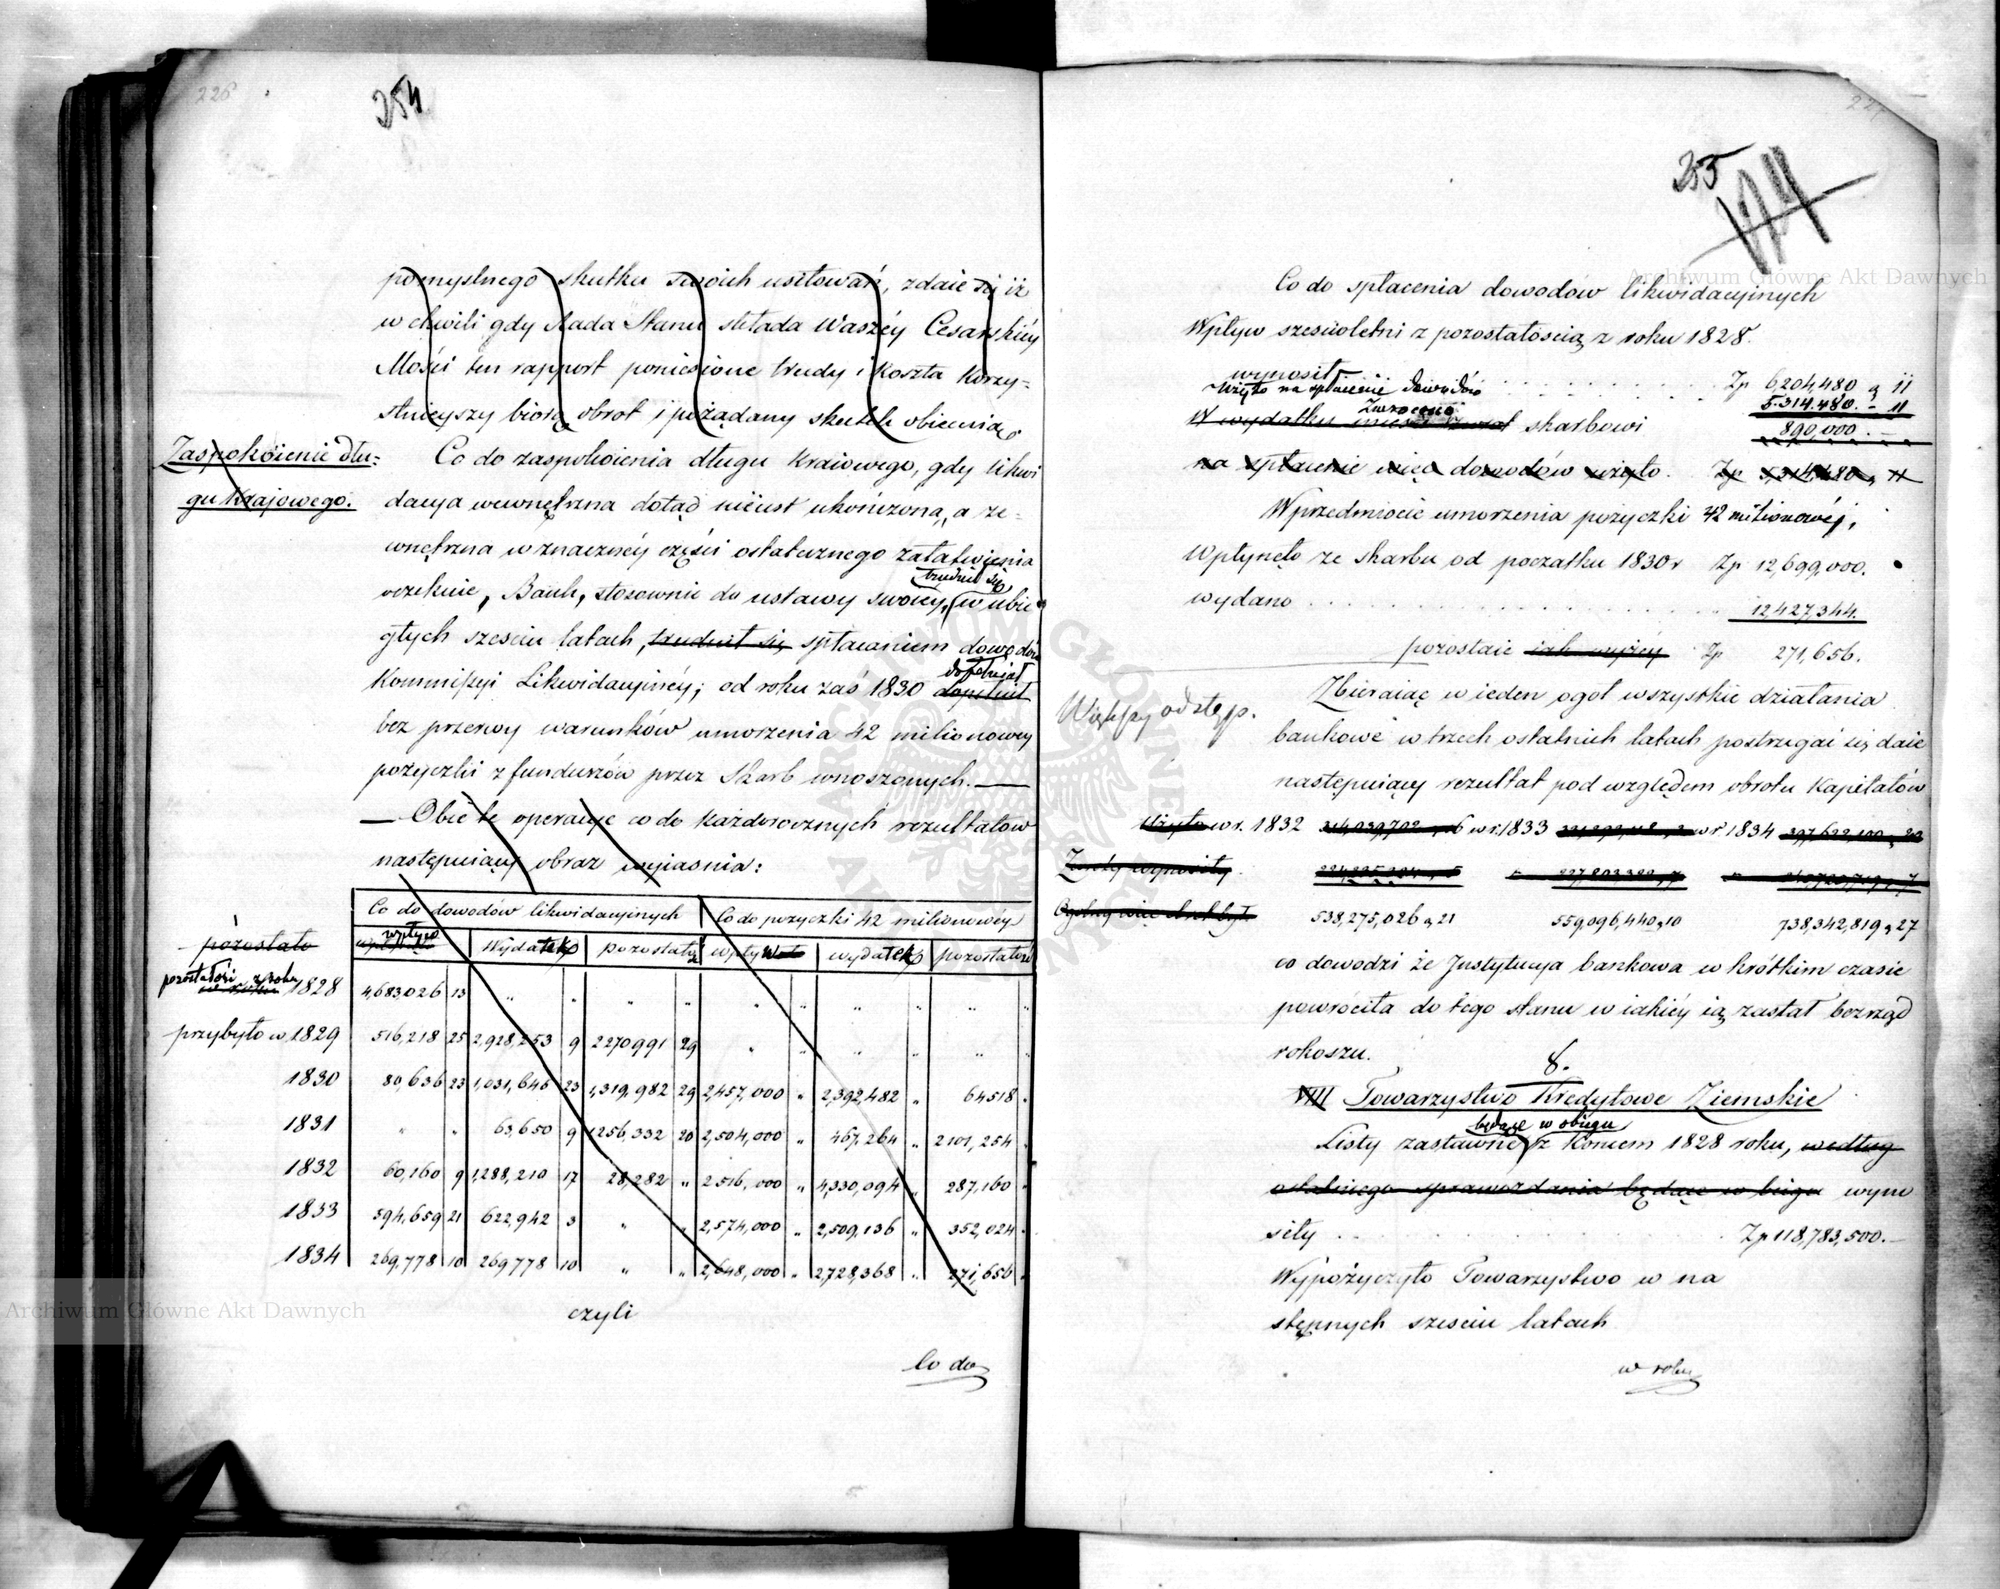 226
254
pomyslnego skutku swoich usiłowań, zdaie się iż
w chwili gdy Rada Stanu składa Waszéy Cesarskiéy
Mości ten rapport poniesione trudy i koszta korzy=
stnieyszy biorą obrot i pożądany skutek obiecuią.
Zaspokoienie dłu=
gu Krajowego.
Co do zaspokoienia długu kraiowego, gdy likwi
dacya wewnętrzna dotąd nieiest ukończoną, a ze=
wnętrzna w znacznéy części ostatecznego załatwienia
trudnił się
oczekuie, Bank, stosownie do ustawy swoiéy, w ubie
głych sześciu latach, trudnił się spłacaniem dowodów
dopełniał
Kommissyi Likwidacyinéy; od roku zaś 1830 dopełnił
bez przerwy warunków umorzenia 42 milionowey
pożyczki z funduszów przez Skarb wnoszonych. —
— Obie te operacye co do każdorocznych rezultatów
następuiący obraz wyiasnia:
Co do dowodów likwidacyinych Co do pożyczki 42 milionowéy
pozostało wpływ wydatek pozostałość wpływ wydatek pozostałość
pozostałości z roku 1828 4,683,026 13 " " " " " " " " " "
przybyło w 1829 516,218 25 2,928,253 9 2270991 29 " " " " " "
1830 80,636 23 1,031,645 23 1,319,982 29 2,457,000 " 2,392,482 " 64518 "
1831 " " 63,650 9 1256,332 20 2,504,000 " 467,264 " 2101,254 "
1832 60,160 9 1,288,210 17 28,282 " 2516,000 " 4,330,094 " 287,160 "
1833 594,659 21 622,942 3 " " 2,574,000 " 2,509,136 " 352,024 "
1834 269,778 10 269,778 10 " " 2,648,000 " 2,728,368 " 271,656 "
czyli
Co do
255
124
Co do spłacenia dowodów likwidacyinych
Wpływ sześcioletni z pozostałością z roku 1828.
wynosił Zp 6,204,480 g 11
Użyto na spłacenie dowodów 5.314,480. - 11
Zwrócono
W wydatku skarbowi 890,000. —
na spłacenie więc dowodów użyto. Zp 5,314,480, 11
W przedmiocie umorzenia pożyczki 42 milionowéy,
Wpłynęło ze skarbu od początku 1830 r Zp 12,699,000.
wydano 12,427,344.
pozostaie iak wyżéy Zp 271,656.
Większy odstęp.
Zbieraiąc w ieden ogoł wszystkie działania
bankowe w trzech ostatnich latach postrzegać się daie
następuiący rezultat pod względem obrotu kapitałów
Użyto w r. 1832 w r. 1833 w r 1834
Zwroty wynosiły
Ogólny więc obrot był 538,275,026 g 21 559,096,440 g 10 738,342,819 g 27
co dowodzi że Instytucya bankowa w krótkim czasie
powróciła do tego stanu w iakiéy ią zastał bezrząd
rokoszu.
8.
VIII Towarzystwo Kredytowe Ziemskie
będące w obiegu
Listy zastawne z końcem 1828 roku, według
ostatniego sprawozdania będące w biegu wyno
siły Zp 118,783,500.—
Wypożyczyło Towarzystwo w na
stępnych sześciu latach
w roku
Archiwum Główne Akt Dawnych
Archiwum Główne Akt Dawnych
ARCHIWUM GŁÓWNE AKT DAWNYCH